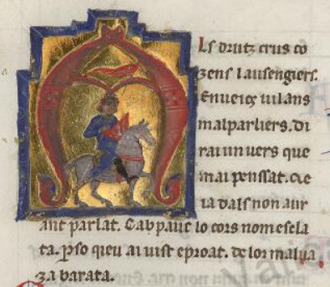 Ls drutz crus co
zens lausengiers.
Enueios uilans
malparliers. Di
rai un uers que
mai penssat. Qe
ia dals non aur
ant parlat. Cab pauc lo cors nom escla
ta. pso qieu ai uist eproat. de lor malua
za barata.